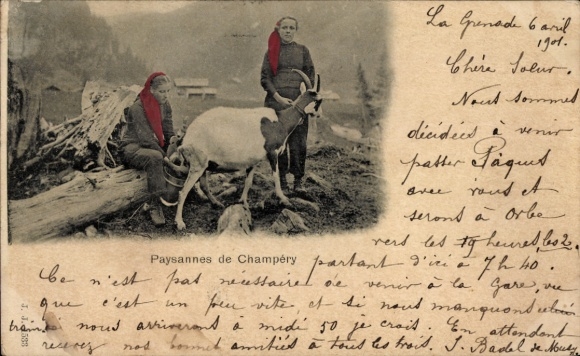 La Grenade 6 avril
1901.
Chère Soeur.
Nous sommes
décidées à venir
passer Pâques
avec vous et
serons à Orbe
vers les 19 heures, les 2
Paysannes de Champéry
partant d'ici à 7 h 40.
Ce n'est pas nécessaire de venir à la Gare, vu
que c'est un peu vite et si nous manquons
train, nous arriverons à midi 50 je crois. En attendant
recevez nos bonnes amitiés à tous les trois. J. Badel de
J. J.